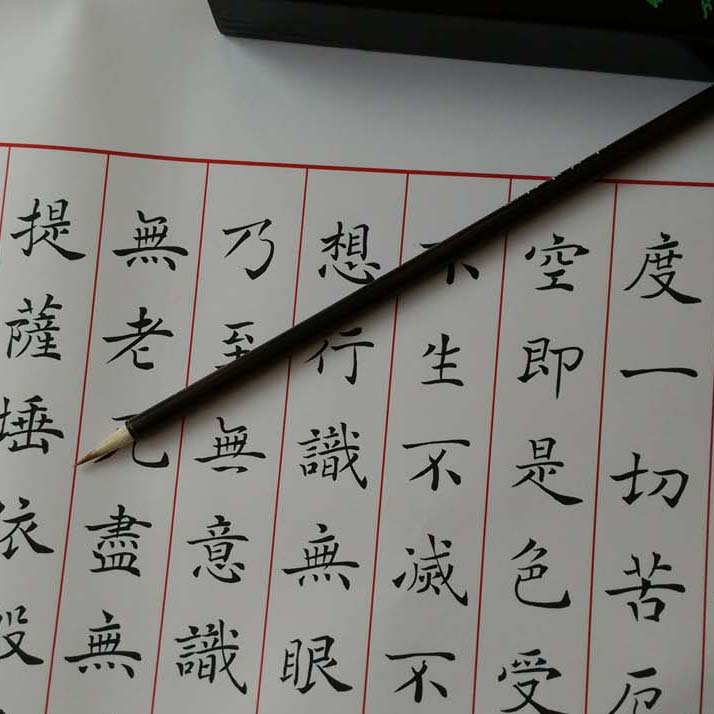 度一切苦厄
空即是色受
不生不滅不
想行識無眼
乃至無意識
無老死盡無
提薩埵依般